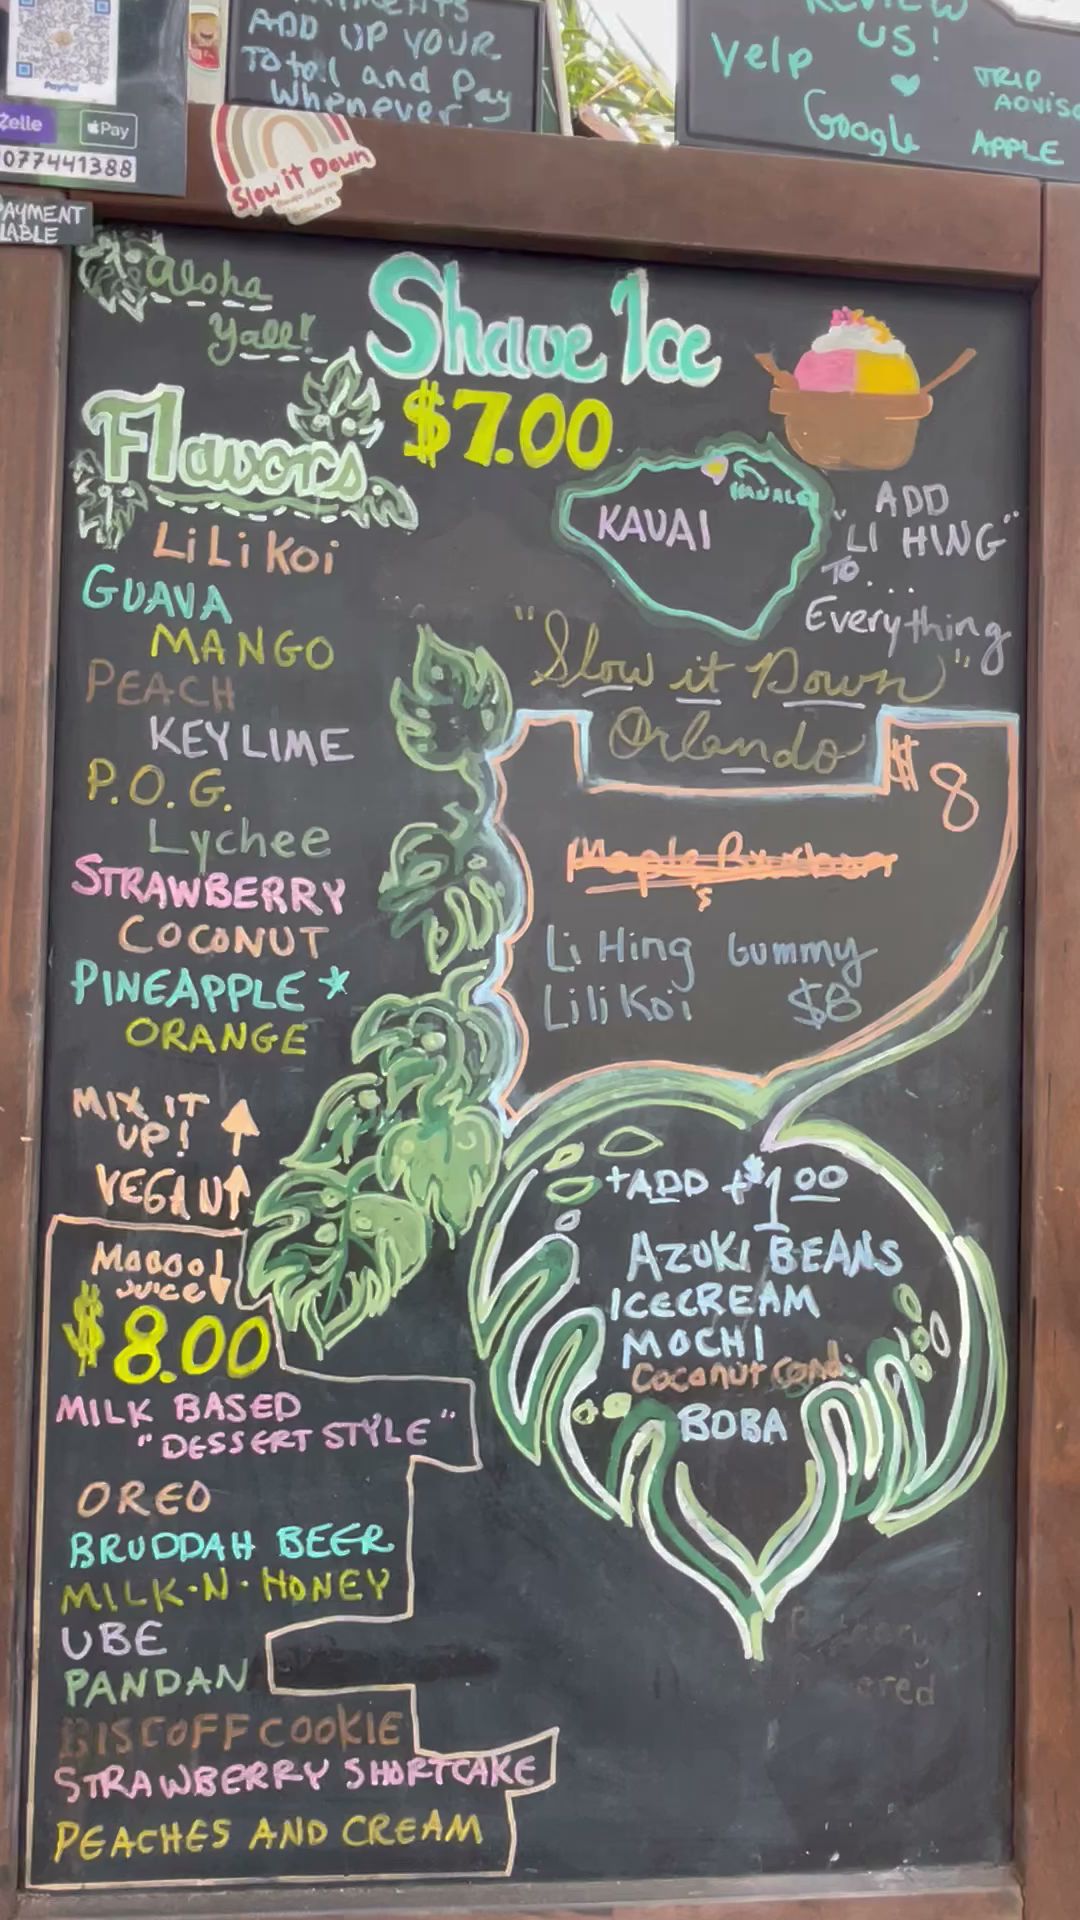 PayPal
Zelle
Pay
077441388
ADD UP YOUR
Total and Pay
Whenever.
REVIEW
US!
Yelp
Google
TRIP
APPLE
Slow it Down
Aloha
Yall!
Shave Ice
$7.00
Flavors
LiLiKoi
GUAVA
MANGO
PEACH
KEY LIME
P.O.G.
Lychee
STRAWBERRY
COCONUT
PINEAPPLE *
ORANGE
MIX IT
UP!
VEGAN
Moooo
JUICE
$8.00
MILK BASED
"DESSERT STYLE"
OREO
BRUDDAH BEER
MILK·N·HONEY
UBE
PANDAN
BISCOFF COOKIE
STRAWBERRY SHORTCAKE
PEACHES AND CREAM
KAUAI
ADD
"LI HING"
TO...
Everything
"Slow it Down"
Orlando
$8
Li Hing Gummy
LiliKoi $8
+ADD +$1.00
AZUKI BEANS
ICECREAM
MOCHI
Coconut Condi
BOBA